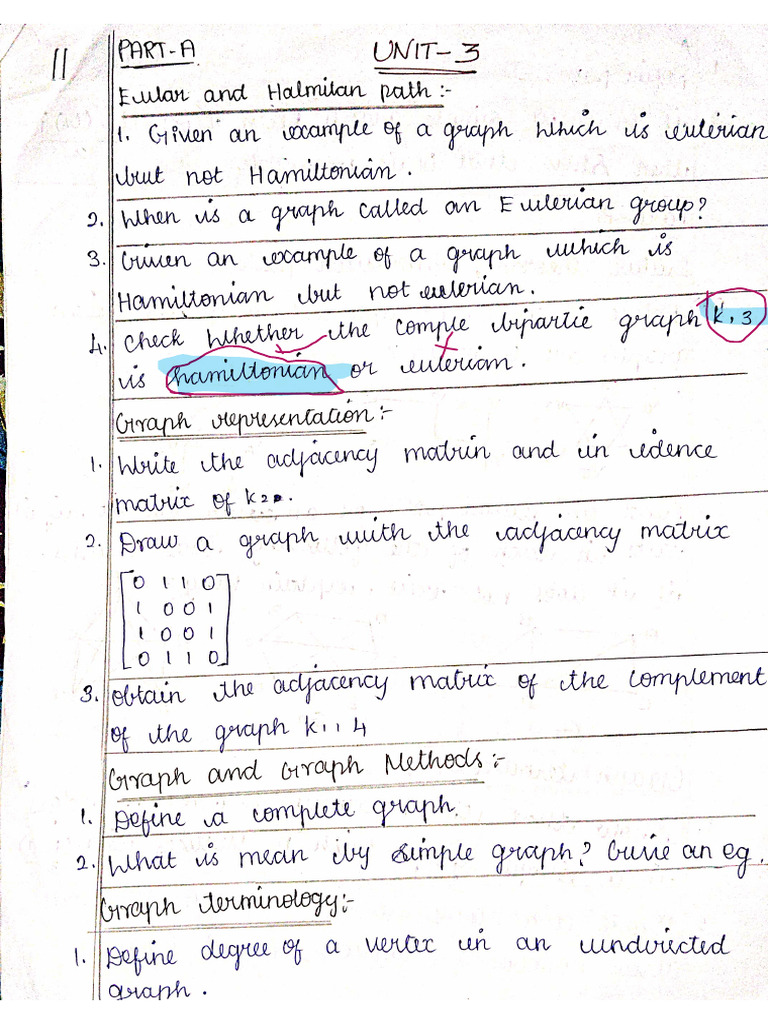 11
PART-A UNIT-3
Eular and Halmilan path :-
1. Given an example of a graph which is eulerian
but not Hamiltonian.
2. When is a graph called an Eulerian group?
3. Given an example of a graph which is
Hamiltonian but not eulerian.
4. Check whether the comple bipartie graph K, 3
is hamiltonian or eulerian.
Graph representation:-
1. Write the adjacency matrin and in edence
matrix of K20.
2. Draw a graph with the adjacency matrix
0 1 1 0
1 0 0 1
1 0 0 1
0 1 1 0
3. Obtain the adjacency matrix of the complement
of the graph K1, 4
Graph and Graph Methods :-
1. Define a complete graph.
2. What is mean by simple graph? Give an eg.
Graph terminology:-
1. Define degree of a vertex in an undirected
graph.